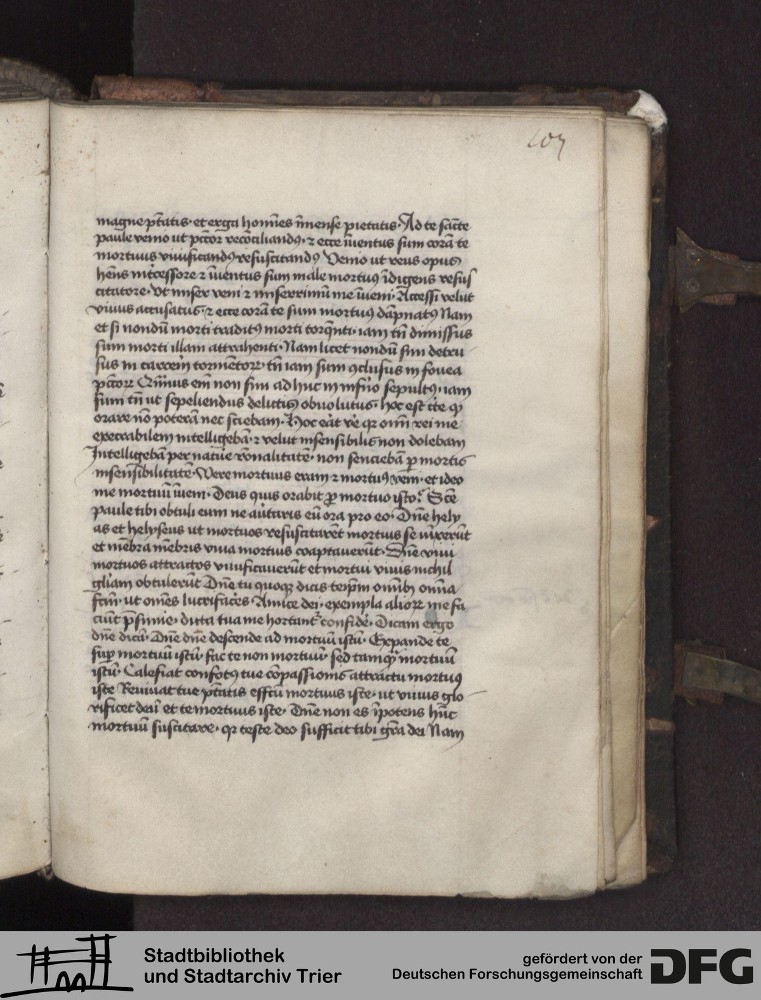 107
magne ptatis · et erga homines imense pietatis · Ad te sancte
paule venio ut pctor reconciliandꝰ · ⁊ ecce inventus sum cora te
mortuus vivificandꝰ resuscitandꝰ Venio ut reus opus
hens intercessore ⁊ inventus sum male mortuꝰ indigens resus
citatore · Ut miser veni ⁊ miserrimū me inveni · Accessi velut
vivus accusatus · ⁊ ecce corā te sum mortuꝰ dāpnatꝰ Nam
et si nondū morti traditꝰ morti torquenti · iam tn̄ dimissus
sum morti illam attrahenti · Nam licet nondū sim detru
sus in carcerē tormentorꝝ · tn̄ iam sum ꝯclusus in fovea
pctorꝝ non sim ad huc in inferno sepultꝰ · iam
sum tn̄ ut sepeliendus delictis obvolutus · hoc est
orare nō poterā nec sciebam · Hoc me
execrabilem intelligebā · ⁊ velut insensibilis non dolebam
Intelligebā per nature rōnalitatē · non senciebā ꝑ mortis
insensibilitatē · Vere mortuus eram ⁊ mortuꝰ veni · et ideo
me mortuū inveni · Deus quis orabit ꝓ mortuo isto · Sce
paule tibi obtuli eum ne averteris eū ora pro eo · Dn̄e hely
as et helyseus ut mortuos resuscitarēt mortuis se iūxerūt
et mēbra mēbris viva mortuis coaptaverūt · Dn̄e vivi
mortuos attractos vivificaverūt et mortui vivis nichil
obtulerūt Dn̄e tu quoqꝫ dicis teipm̄ omībꝫ omīa
fcm̄ · ut omēs lucrifaceres Amice dei · exempla aliorꝝ me fa
ciūt p̄sumē · dicta tua me hortant confidē · Dicam ergo
dn̄e dicā · Dn̄e dn̄e descende ad mortuū istū · Expande te
sup mortuū istū fac te non mortuū · sed tamqꝫ mortuū
istū · Calefiat confotꝰ tue cōpassionis attractu mortuꝰ
iste Revivat tue ptatis effctū mortuus iste · ut vivus glo
rificet deū et te mortuus iste · Dn̄e non es īpotens hūc
mortuū suscitare · qꝛ teste deo sufficit tibi gra dei Nam
Stadtbibliothek
und Stadtarchiv Trier
gefördert von der
Deutschen Forschungsgemeinschaft
DFG